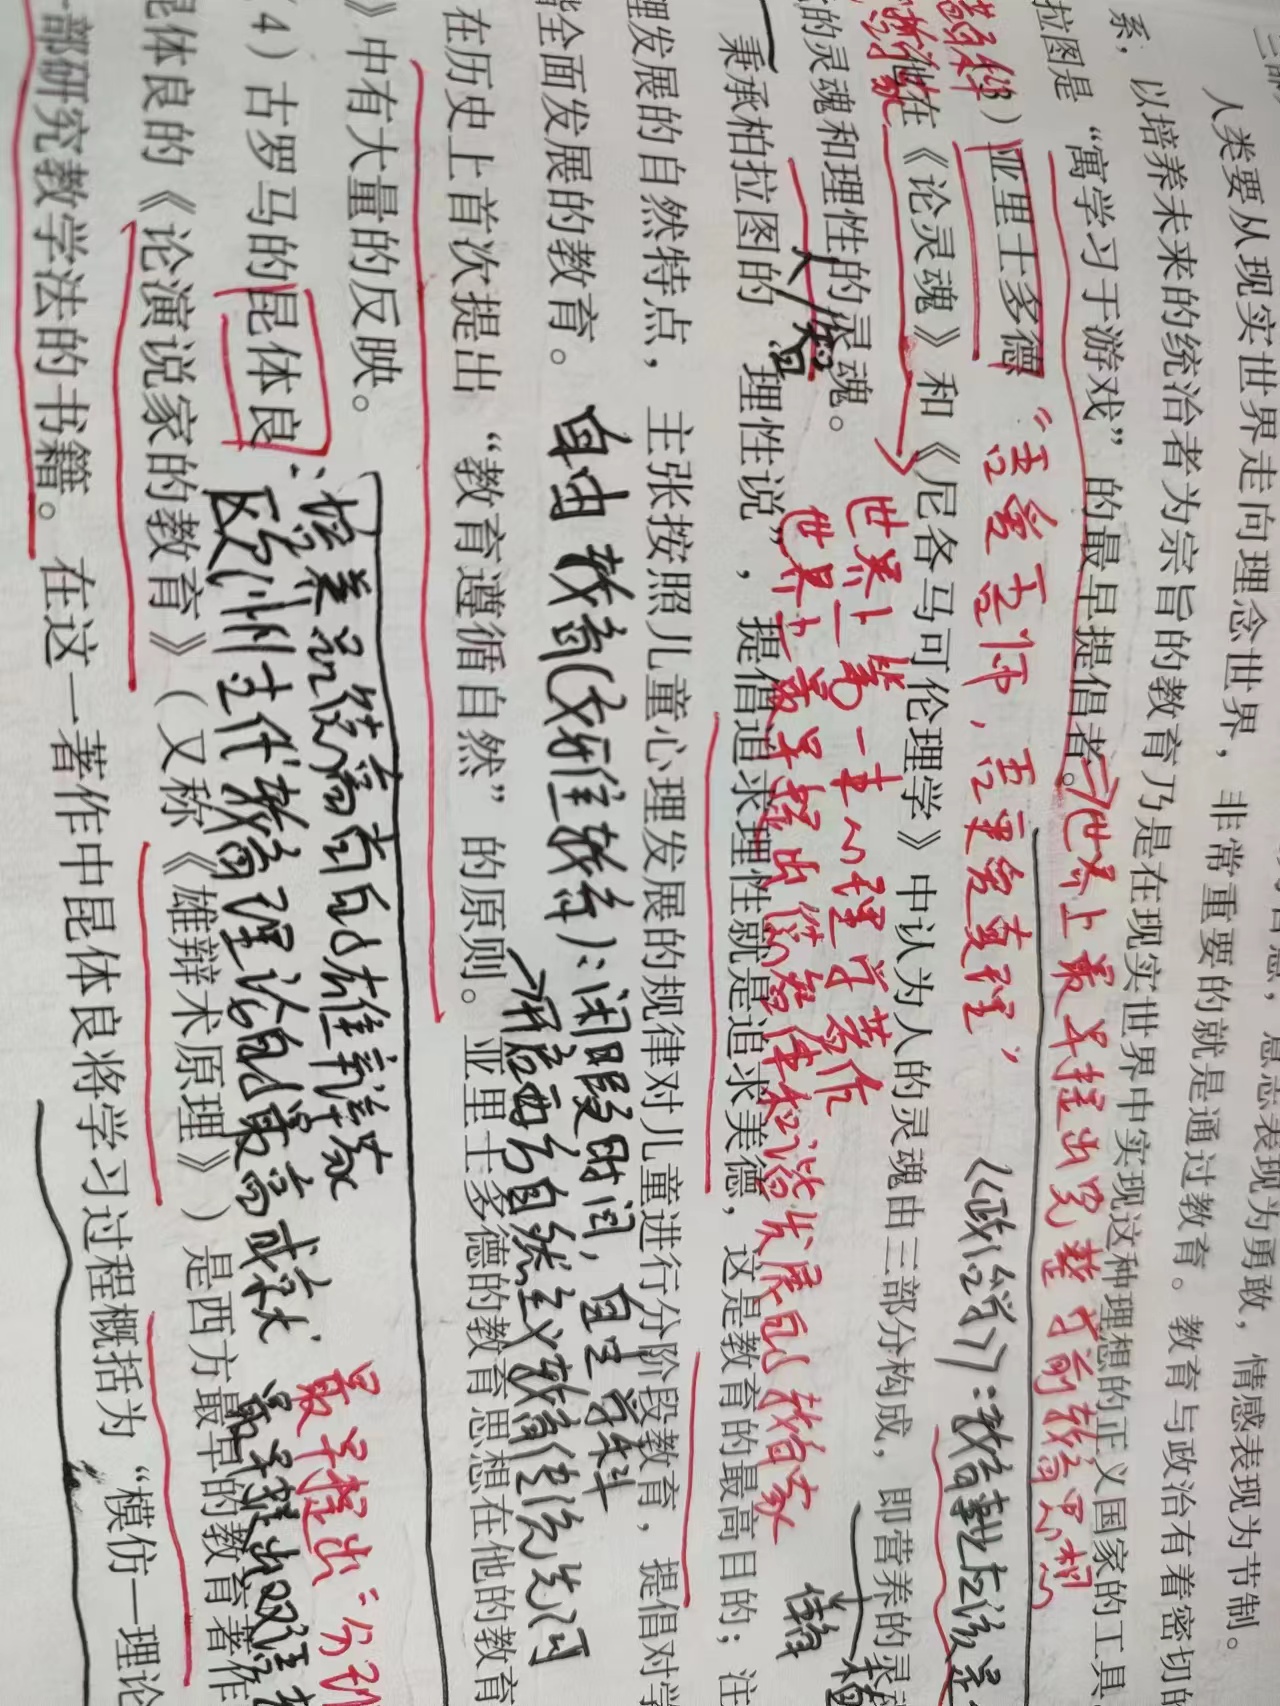 人类要从现实世界走向理念世界，非常重要的就是通过教育。教育与政治有着密切的
系，以培养未来的统治者为宗旨的教育乃是在现实世界中实现这种理想的正义国家的工具
拉图是“寓学习于游戏”的最早提倡者。
世界上最早提出完整学前教育思想
3）亚里士多德
“吾爱吾师，吾更爱真理”
《政治学》：教育事业应该是
他在《论灵魂》和《尼各马可伦理学》中认为人的灵魂由三部分构成，即营养的灵
世界上第一本心理学著作
的灵魂和理性的灵魂。
世界上最早提出德智体和谐发展的教育家
秉承柏拉图的“理性说”，提倡追求理性就是追求美德，这是教育的最高目的；注
理发展的自然特点，主张按照儿童心理发展的规律对儿童进行分阶段教育，提倡对学
全面发展的教育。
自由教育（文雅教育）：闲暇时间，自由学科
开启西方自然主义教育传统先河
在历史上首次提出“教育遵循自然”的原则。亚里士多德的教育思想在他的教育
》中有大量的反映。
（4）古罗马的昆体良：
培养品德高尚的雄辩家
欧洲古代教育理论的最高成就
最早提出“分班
最早提出双语教
昆体良的《论演说家的教育》（又称《雄辩术原理》）是西方最早的教育著作
部研究教学法的书籍。在这一著作中昆体良将学习过程概括为“模仿—理论